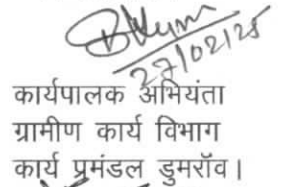 27/02/25
कार्यपालक अभियंता
ग्रामीण कार्य विभाग
कार्य प्रमंडल डुमराॅव।